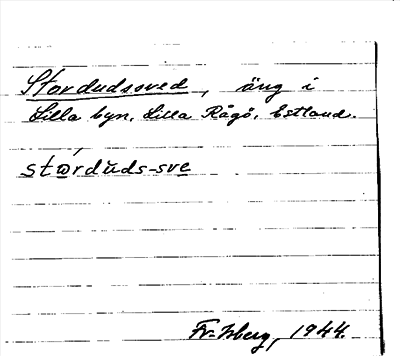 Stordudsved, äng i
Lilla byn, Lilla Rågö, Estland.
stordŭds-sve
1944.